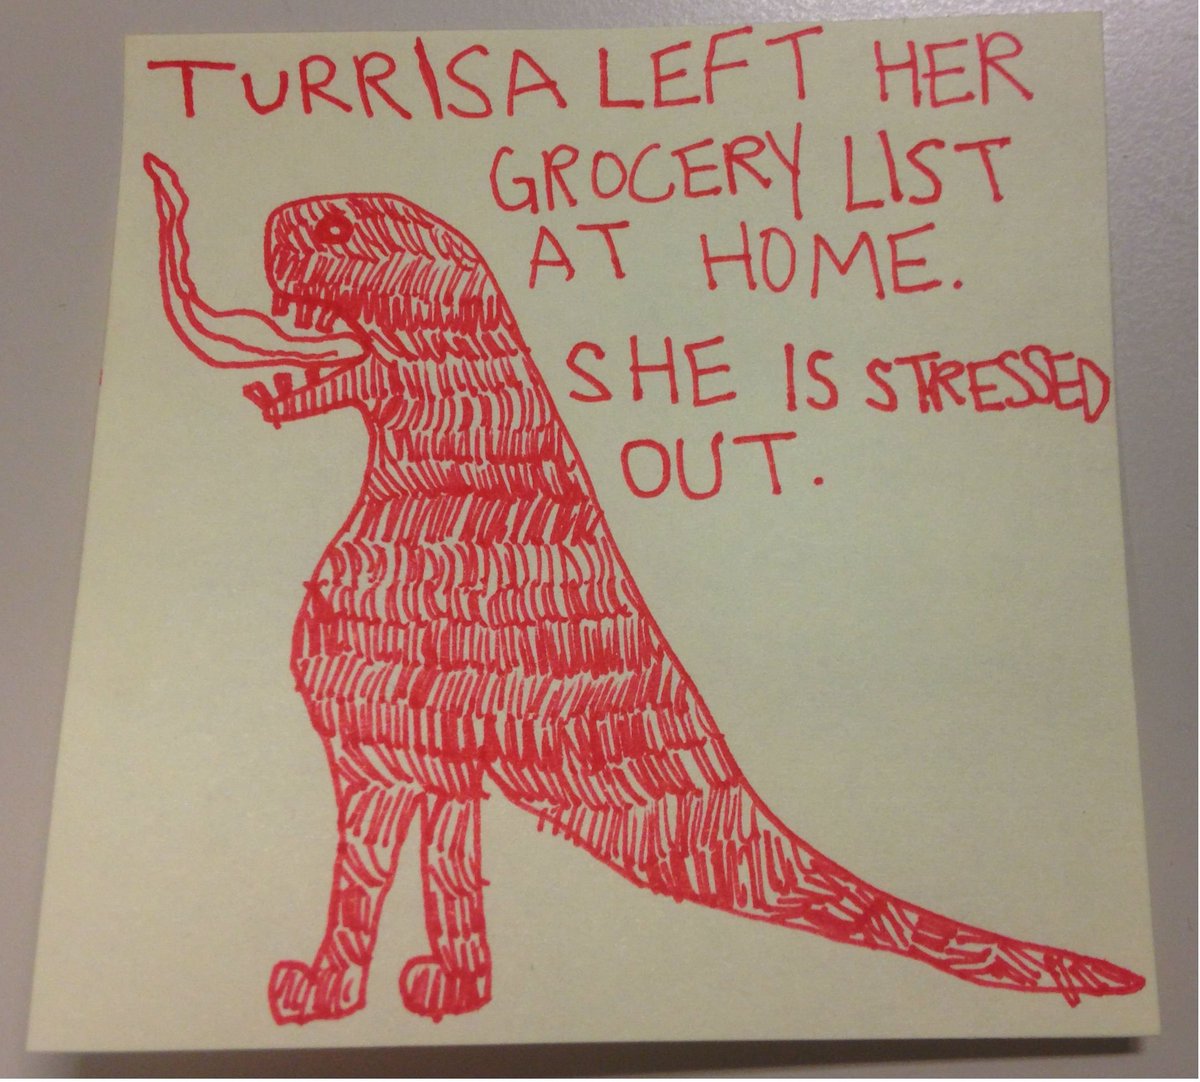 TURRISA LEFT HER
GROCERY LIST
AT HOME.
SHE IS STRESSED
OUT.